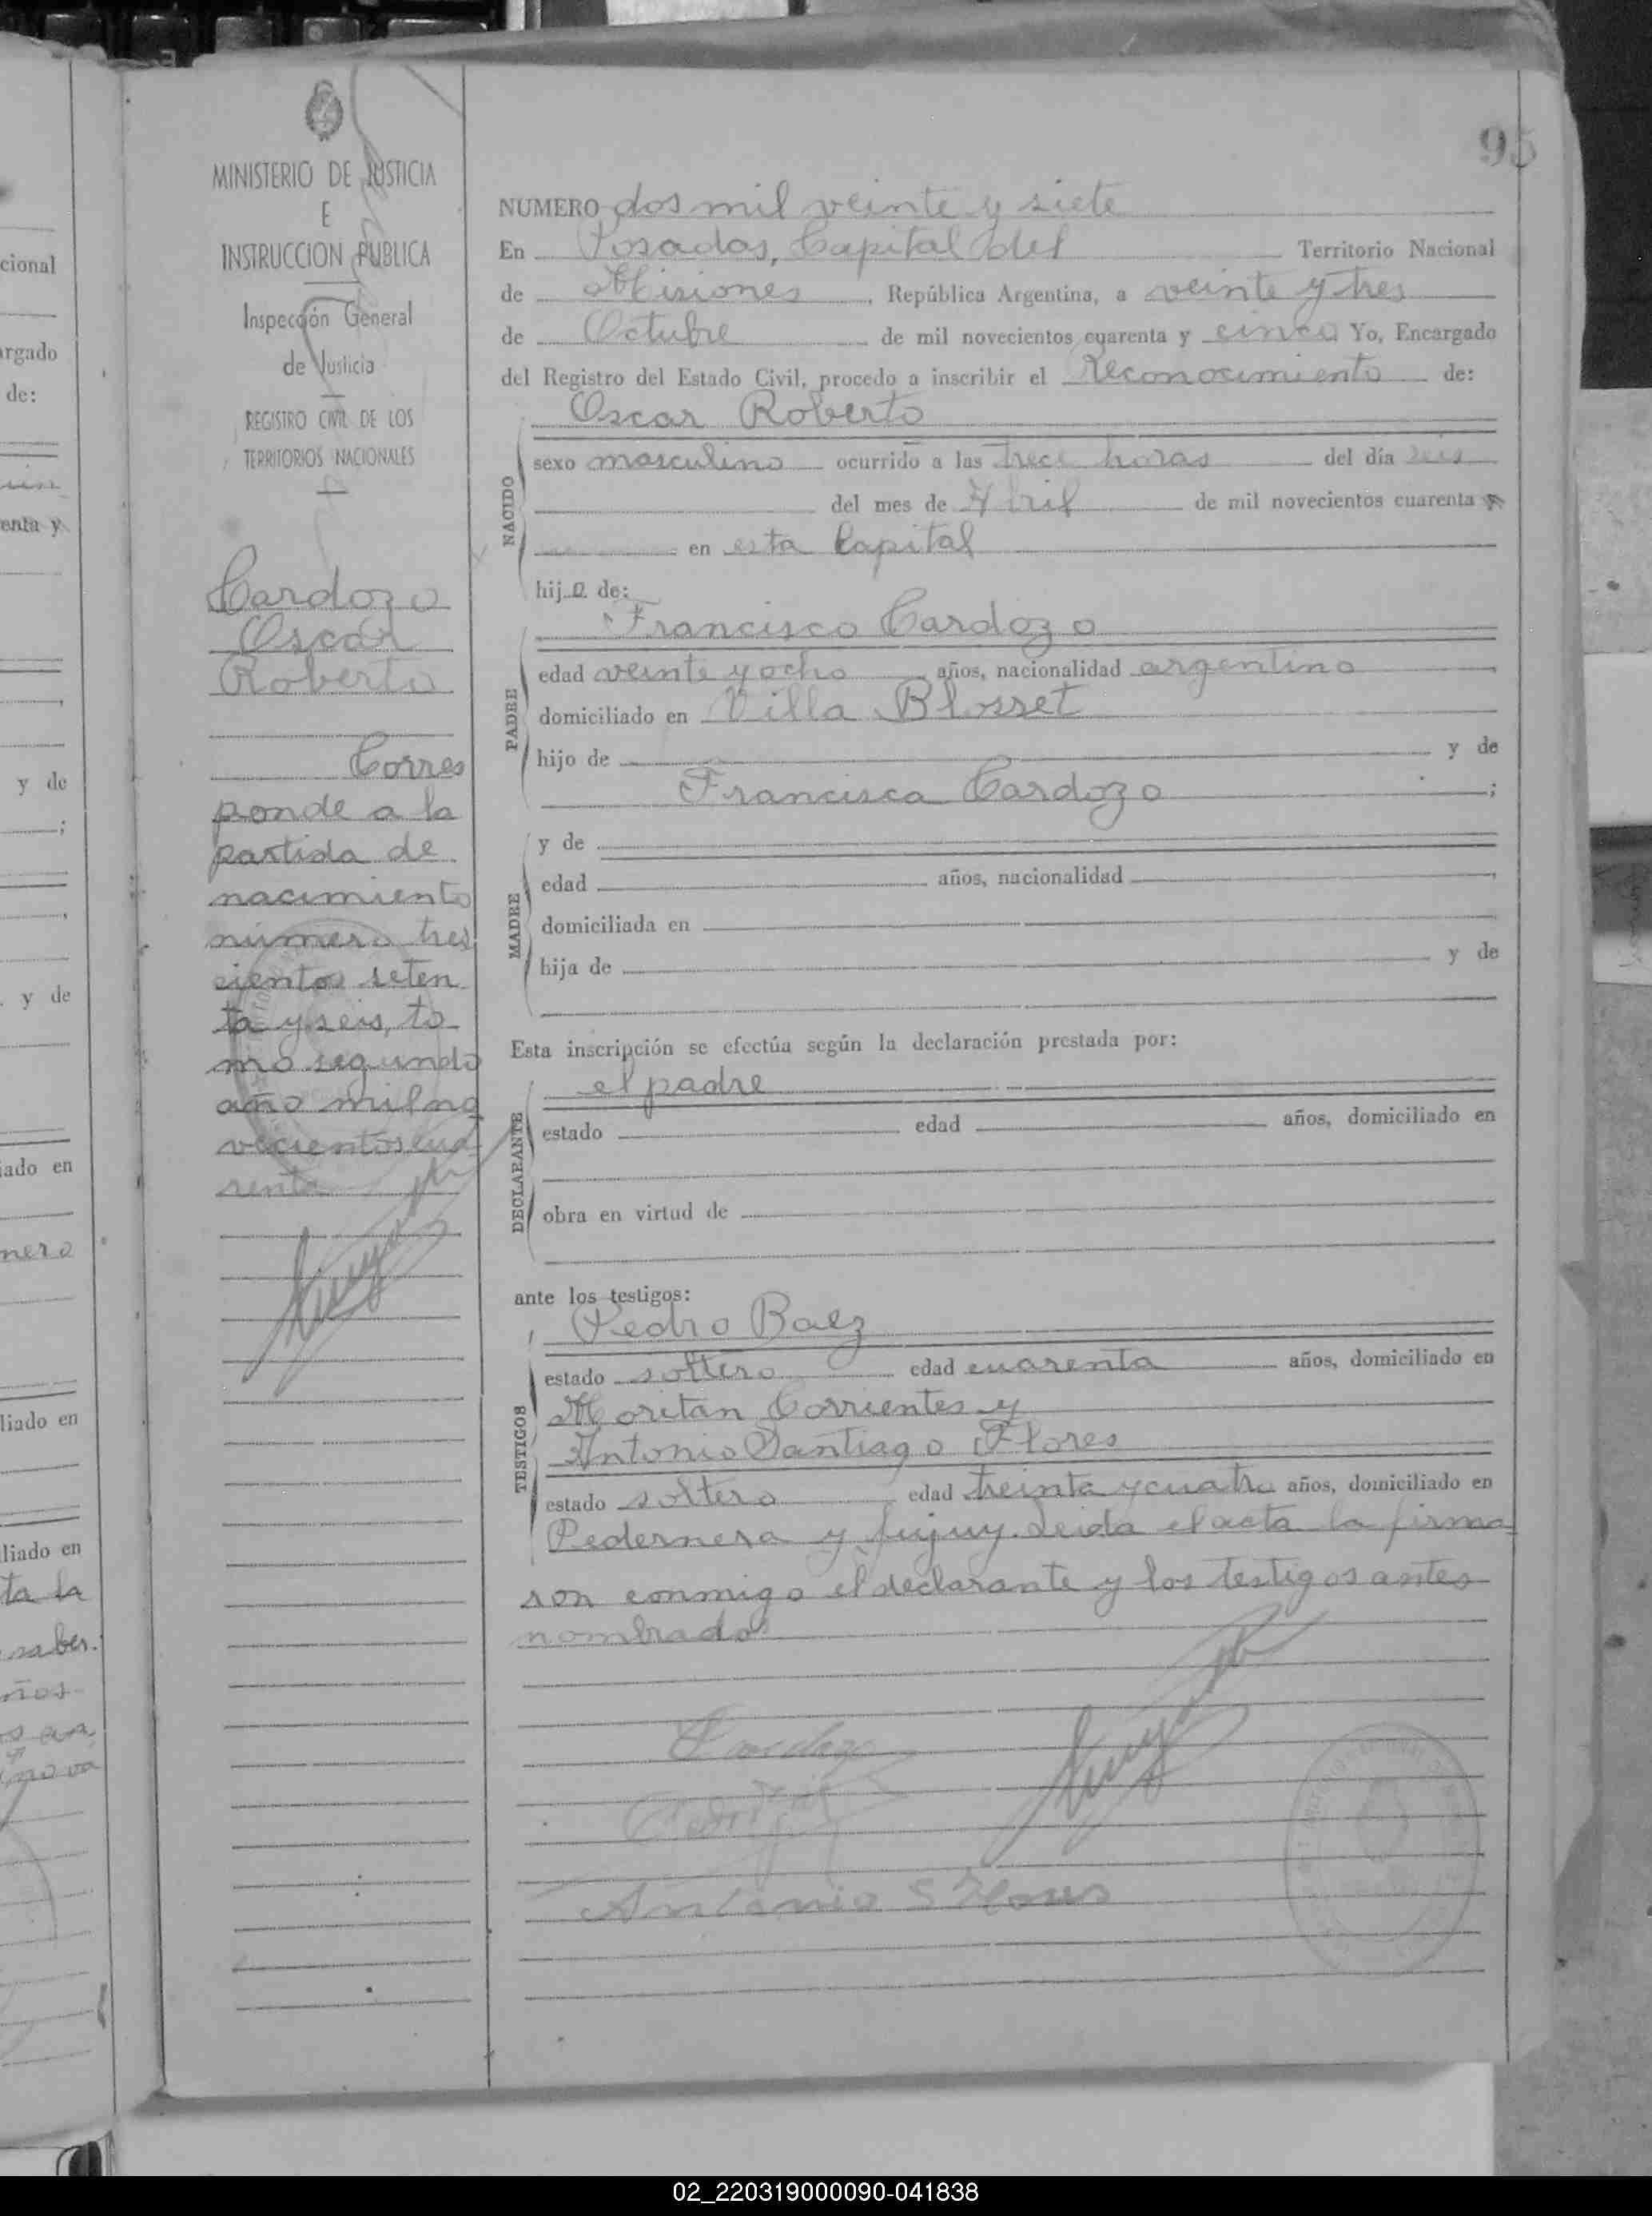 95
MINISTERIO DE JUSTICIA
E
INSTRUCCION PUBLICA
Inspección General
de Justicia
REGISTRO CIVIL DE LOS
TERRITORIOS NACIONALES
Cardozo
Oscar
Roberto
Corres
ponde a la
partida de
nacimiento
número tres
cientos seten
ta y seis, to
mo segundo
año mil no
vecientos cua
renta
NUMERO dos mil veinte y siete
En Posadas, Capital del Territorio Nacional
de Misiones, República Argentina, a veinte y tres
de Octubre de mil novecientos cuarenta y cinco Yo, Encargado
del Registro del Estado Civil, procedo a inscribir el Reconocimiento de:
Oscar Roberto
NACIDO
sexo masculino ocurrido a las trece horas del día seis
del mes de Abril de mil novecientos cuarenta
en esta Capital
hijo de:
Francisco Cardozo
PADRE
edad veinte y ocho años, nacionalidad argentino
domiciliado en Villa Blosset
hijo de y de
Francisca Cardozo ;
y de
MADRE
edad años, nacionalidad
domiciliada en
hija de y de
Esta inscripción se efectúa según la declaración prestada por:
el padre
DECLARANTE
estado edad años, domiciliado en
obra en virtud de
ante los testigos:
Pedro Baez
TESTIGOS
estado soltero edad cuarenta años, domiciliado en
Moritan Corrientes y
Antonio Santiago Flores
estado soltero edad treinta y cuatro años, domiciliado en
Pedernera y Jujuy. Leida el acta la firma
ron conmigo el declarante y los testigos antes
nombrados
Antonio S Flores
cional
argado
de:
enta y
y de
;
y de
iado en
mero
liado en
liado en
ta la
saber.
02_220319000090-041838